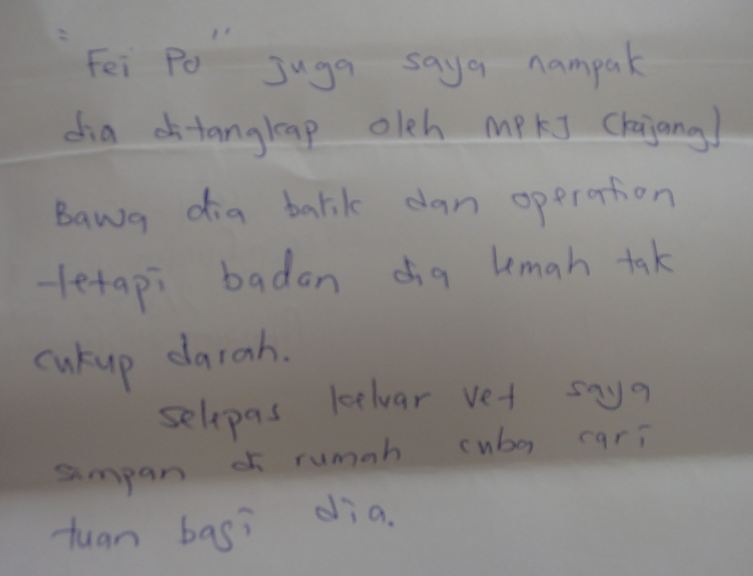 "Fei Po" juga saya nampak
dia ditangkap oleh MPKJ (Kajang)
Bawa dia balik dan operation
tetapi badan dia lemah tak
cukup darah.
selepas keluar vet saya
simpan di rumah cuba cari
tuan basi dia.